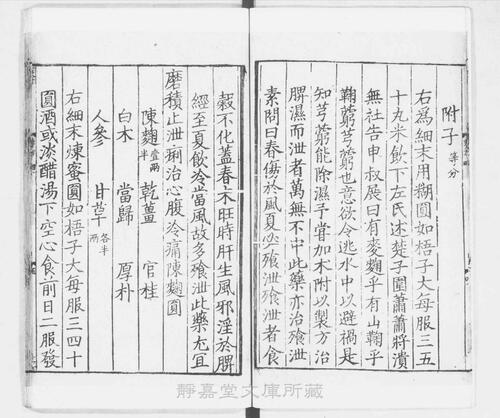 附子等分
右為細末用糊圓如梧子大每服三五
十九米飲下左氏述楚子圍蕭蕭將潰
無社告申叔展曰有麥麴乎有山鞠乎
鞠藭芎藭也意欲令逃水中以避禍是
知芎藭能除濕予嘗加木附以製方治
脾濕而泄者萬無不中此藥亦治飱泄
素問曰春傷於風夏必飱泄飱泄者食
穀不化蓋春木旺時肝生風邪淫於脾
經至夏飲冷當風故多飱泄此藥尤宜
磨積止泄痢治心腹冷痛陳麴圓
陳麴壹兩半 乾薑 官桂
白木 當歸 厚朴
人參 甘草各半兩
右細末煉蜜圓如梧子大每服三四十
圓酒或淡醋湯下空心食前日二服發
靜嘉堂文庫所藏